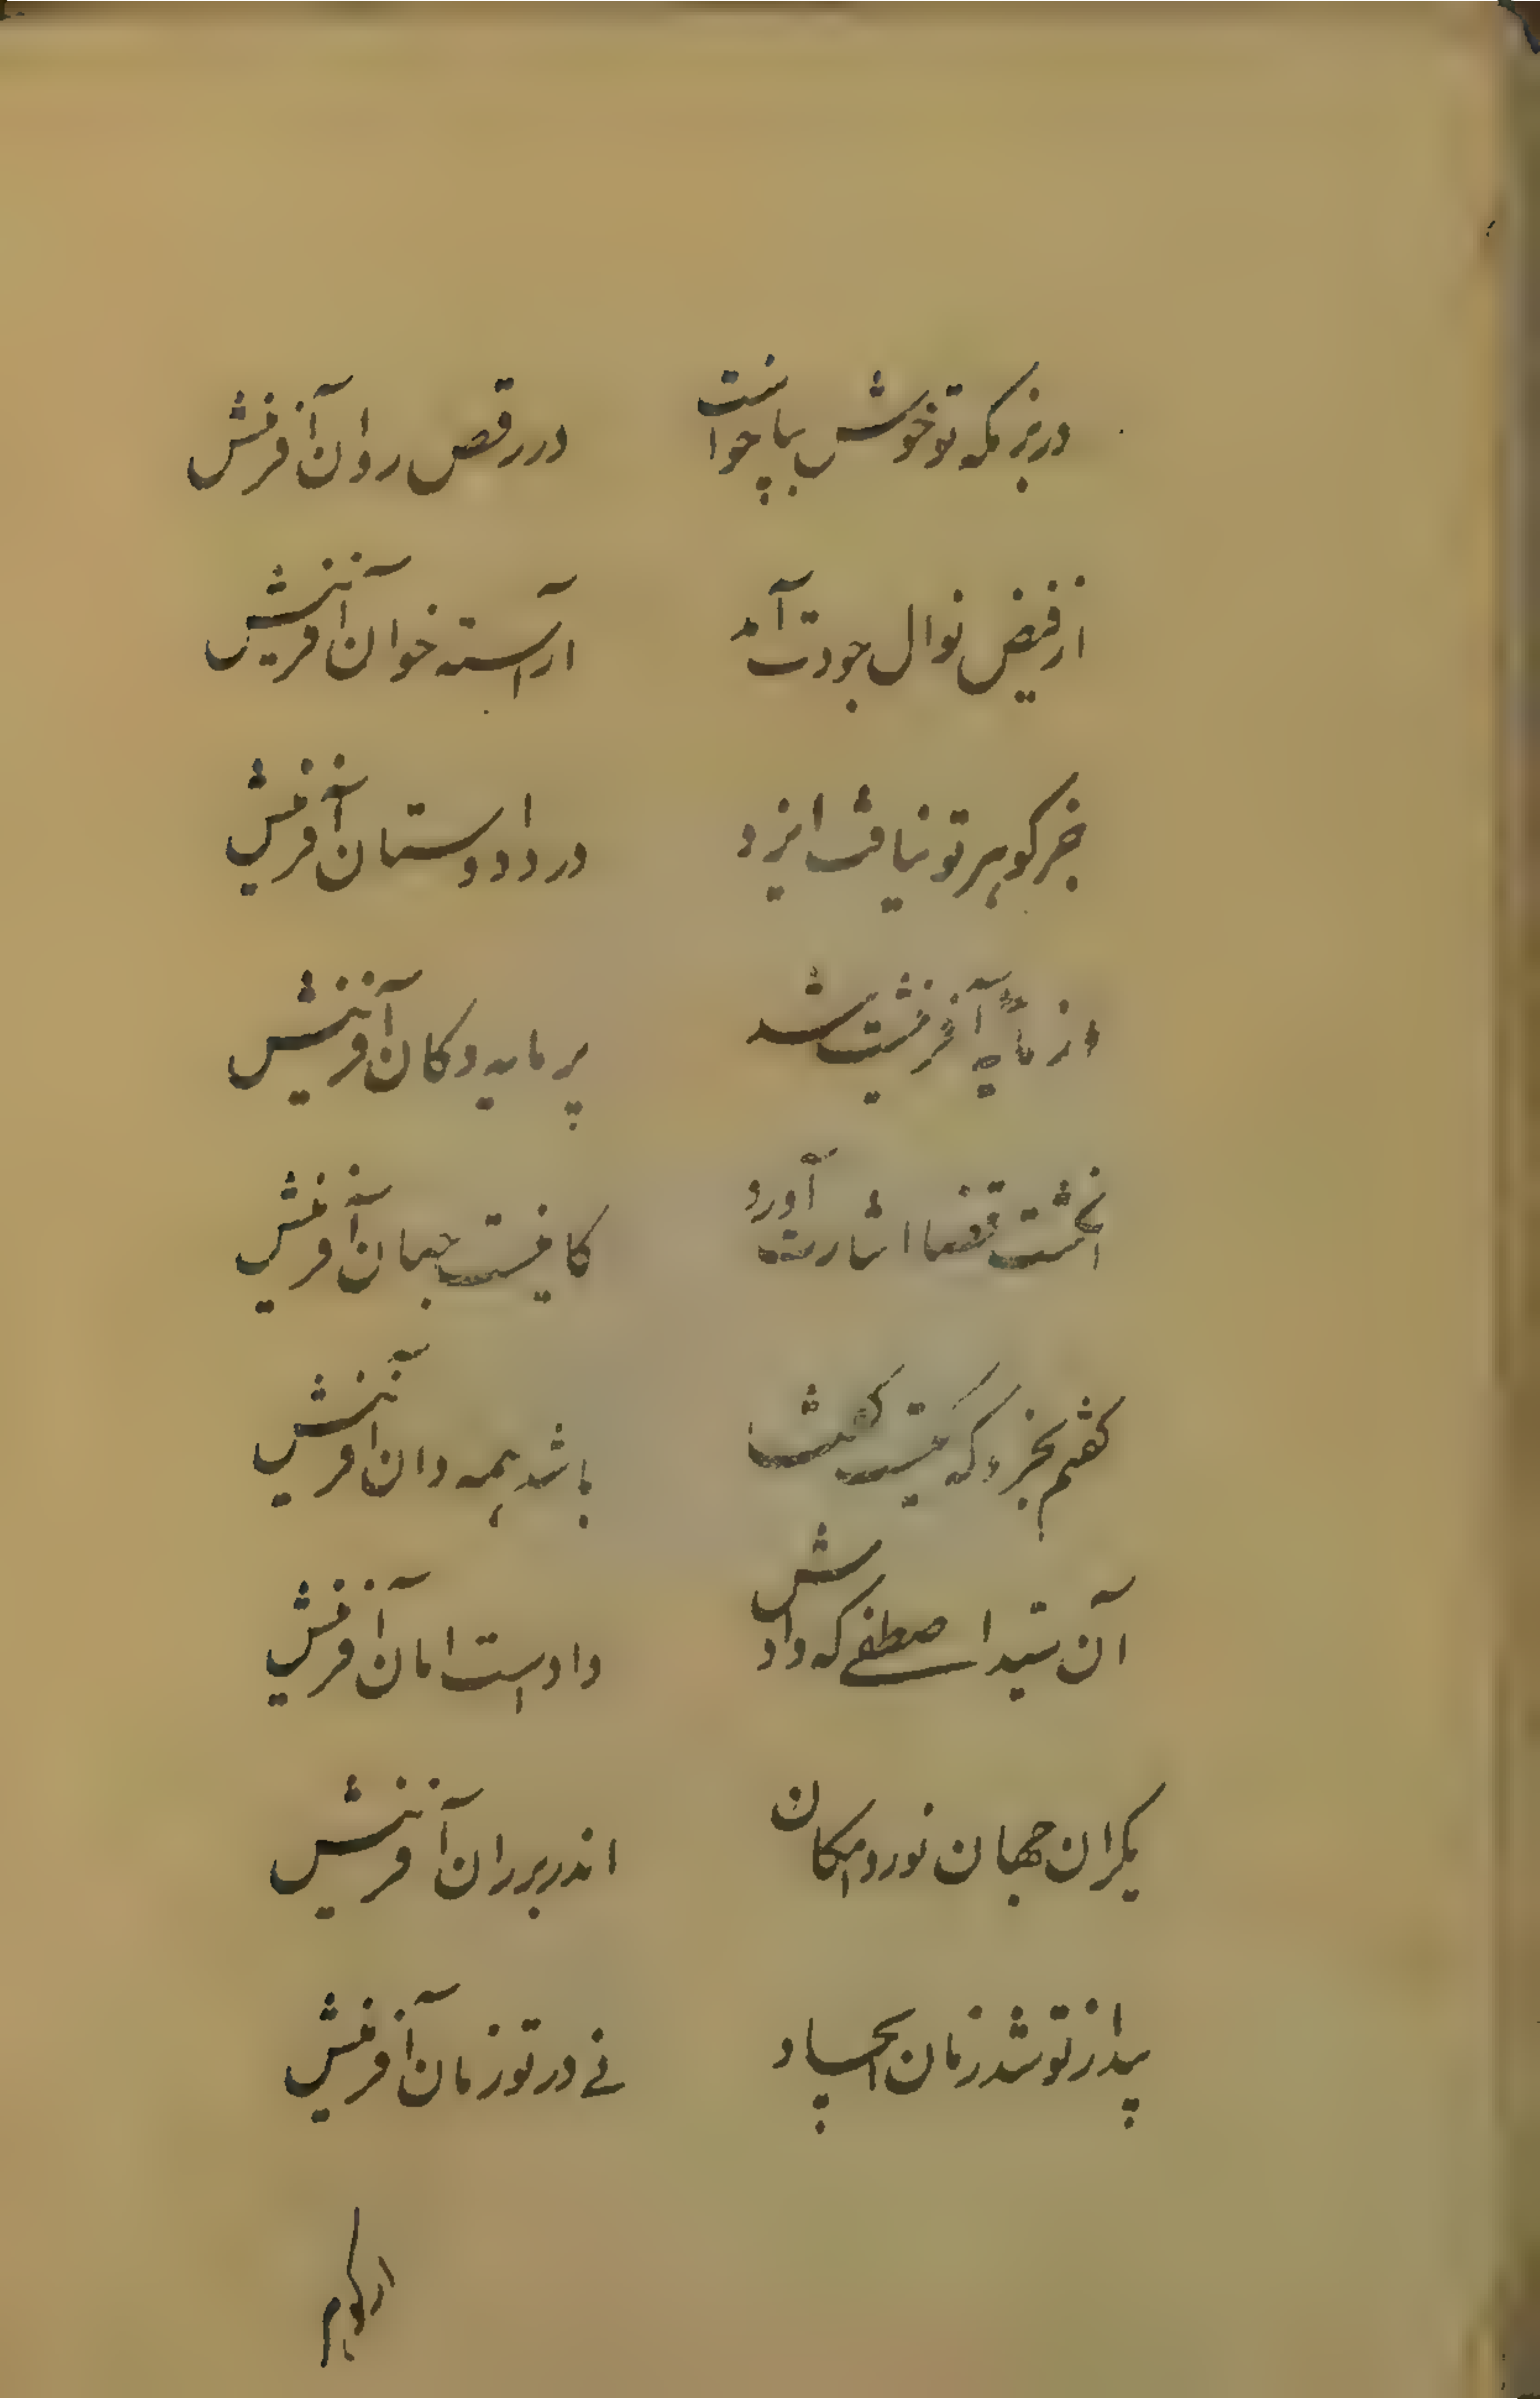 در بزمکه تو خوش بپاخواست در رقص روان آفرینش
از فیض نوال جودت آمد آراسته خوان آفرینش
جز گوهر تو نیافت ایزد در داد و ستان آفرینش
از مایه آفرینشت شد پر مایه دکان آفرینش
انگشت قضا اشارت آورد کافیست جهان آفرینش
گفتم بخرد که کیست گفت باشد همه دان آفرینش
آن سید اصطفی که دادش داد است امان آفرینش
یکران جهان نورد امکان اندر بر ران آفرینش
پیدا از تو شد زمان ایجاد نے در تو زمان آفرینش